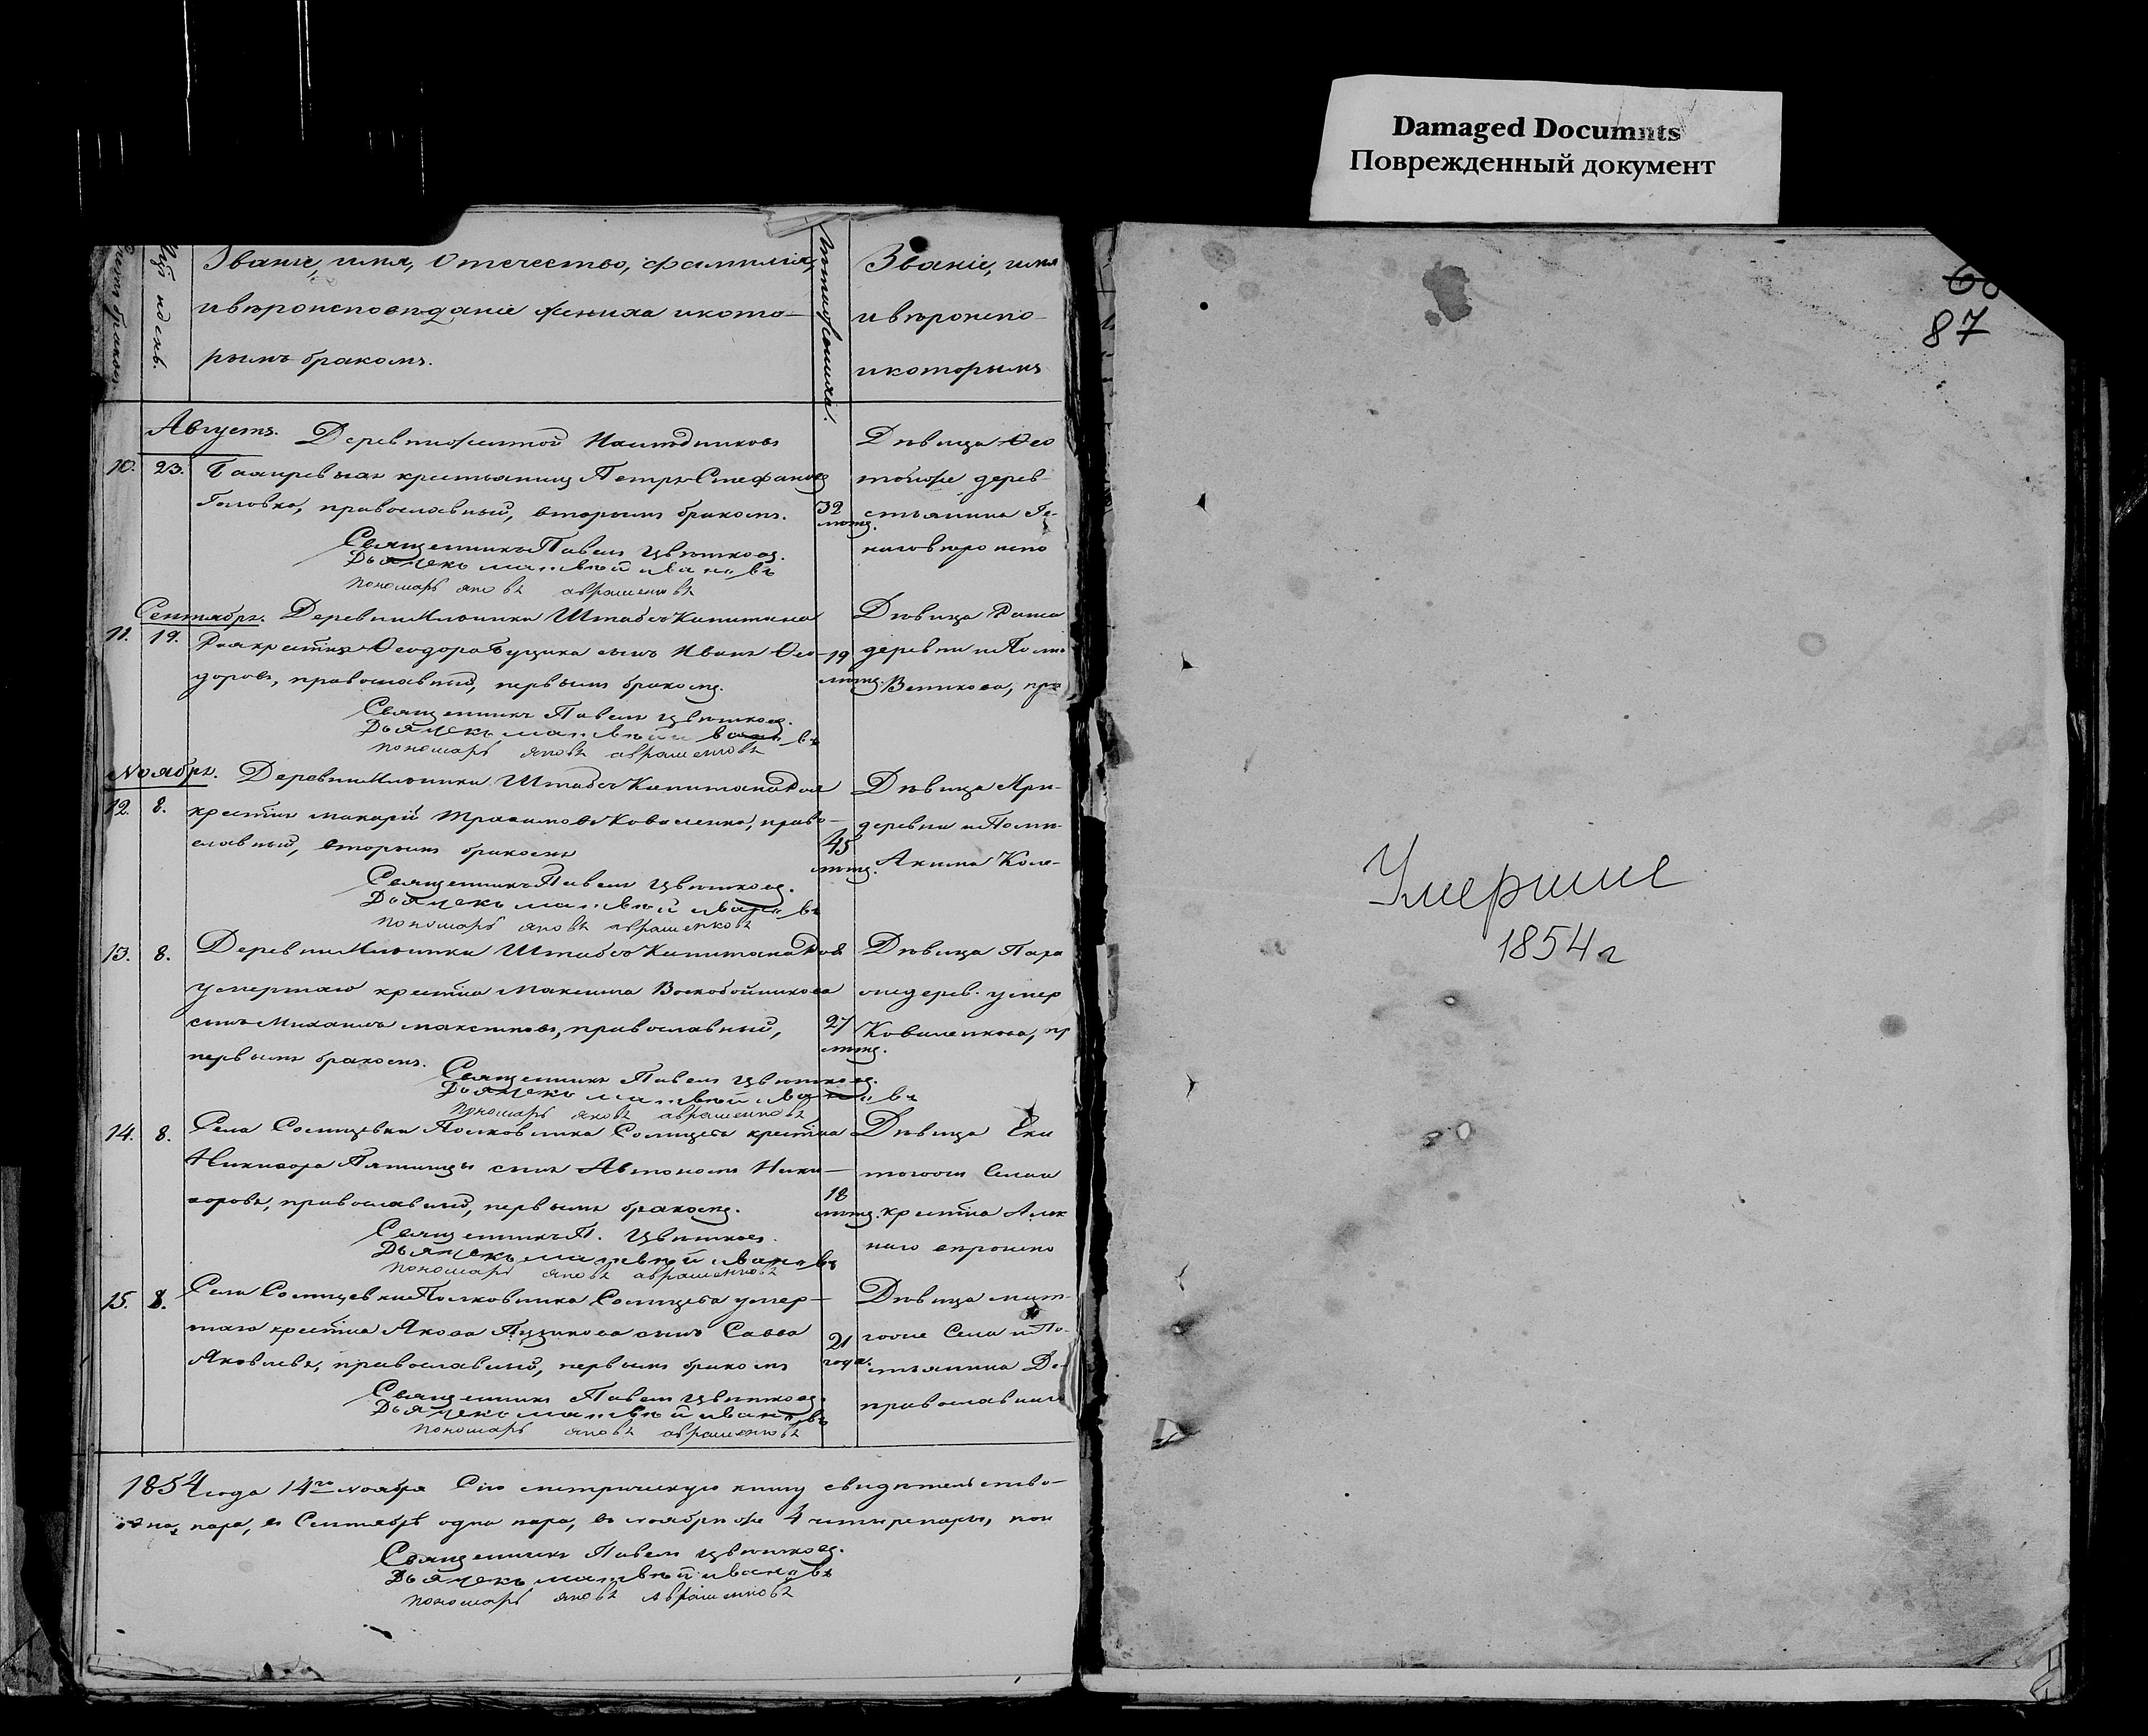 Damaged Documnts
Поврежденный документ
Счетъ браков.
Мцъ и день.
Званіе, имя, отечество, фамилія,
и вѣроисповѣданіе жениха и кото-
рымъ бракомъ.
Лѣта жениха.
Званіе, имя
и вѣроиспо-
и которымъ
Августъ. Деревни
10. 23. крестьянинъ Петръ Стефановъ
Головко, православный, вторымъ бракомъ.
32 лѣтъ.
Дѣвица Ѳео
тойже дерев-
стьянина Ге-
наго вѣроиспо
Священникъ Павелъ Цвѣтковъ.
Дьячекъ Матвѣй Ивановъ
Пономарь Яковъ Аврашенковъ
Сентябрь. Деревни Ильинки Штабсъ Капитана
11. 19. крестна Ѳеодора сынъ Иванъ Ѳео-
доровъ, православный, первымъ бракомъ.
19 лѣтъ.
Дѣвица
деревни и Помѣ
православ
Священникъ Павелъ Цвѣтковъ.
Дьячекъ Матвѣй Ивановъ
Пономарь Яковъ Аврашенковъ
Ноябрь. Деревни Ильинки Штабсъ Капитана
12. 8. крестнъ Макарій Коваленко, право-
славный, вторымъ бракомъ
45 лѣтъ.
Дѣвица Ири-
деревни и Помѣ-
Акима Коле-
Священникъ Павелъ Цвѣтковъ.
Дьячекъ Матвѣй Ивановъ
Пономарь Яковъ Аврашенковъ
13. 8. Деревни Ильинки Штабсъ Капитана
умершаго крестна Максима Воскобойникова
сынъ Михаилъ Максимовъ, православный,
первымъ бракомъ.
27 лѣтъ.
Дѣвица Пара
дерев. умер
Коваленкова, пр
Священникъ Павелъ Цвѣтковъ.
Дьячекъ Матвѣй Ивановъ
Пономарь Яковъ Аврашенковъ
14. 8. Села Солнцевки Полковника Солнцева крестна
Никифора Пятницы сынъ Автономъ Ники-
форовъ, православный, первымъ бракомъ.
18 лѣтъ.
Дѣвица Ека
тогоже Села
крестна Алек
наго вѣроиспо
Священникъ П. Цвѣтковъ.
Дьячекъ Матвѣй Ивановъ
Пономарь Яковъ Аврашенковъ
15. 8. Села Солнцевки Полковника Солнцева умер-
шаго крестна Якова сынъ Савва
Яковлевъ, православный, первымъ бракомъ
21 года.
Дѣвица
тогоже Села и По-
стьянина Де-
православнаго
Священникъ Павелъ Цвѣтковъ.
Дьячекъ Матвѣй Ивановъ
Пономарь Яковъ Аврашенковъ
1854 года 14го ноября Сію метрическую книгу свидѣтельство-
одна пара, въ Сентябрѣ одна пара, въ ноябрѣ же 4 четыре пары, кои
Священникъ Павелъ Цвѣтковъ.
Дьячекъ Матвѣй Ивановъ
Пономарь Яковъ Аврашенковъ
87
Умершие
1854 г